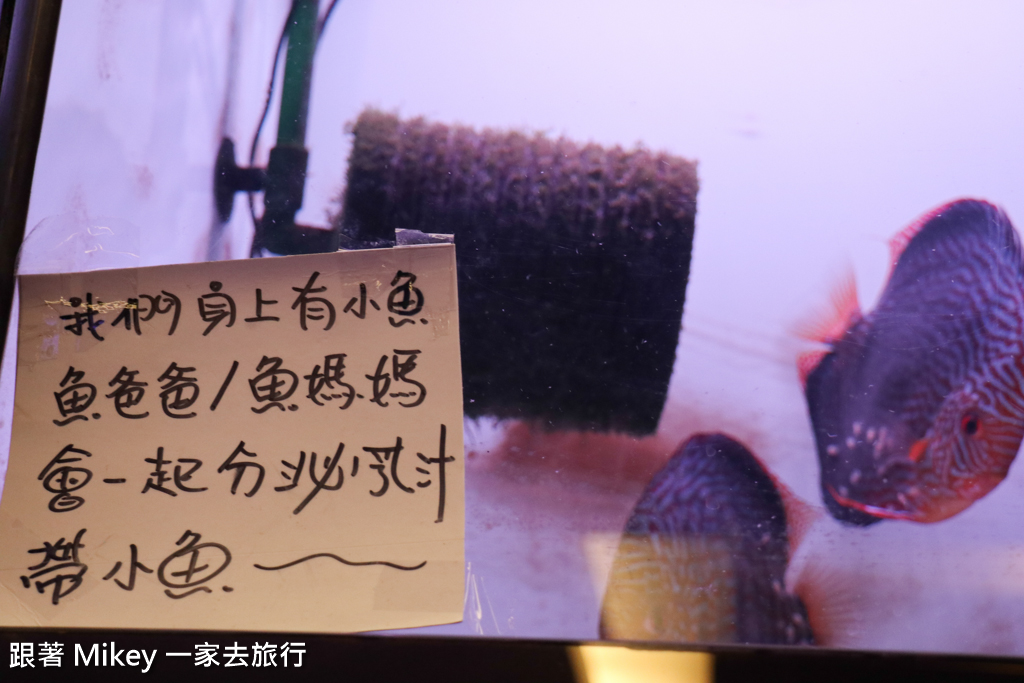 我們身上有小魚
魚爸爸/魚媽媽
會一起分泌乳汁
帶小魚~
跟著 Mikey 一家去旅行